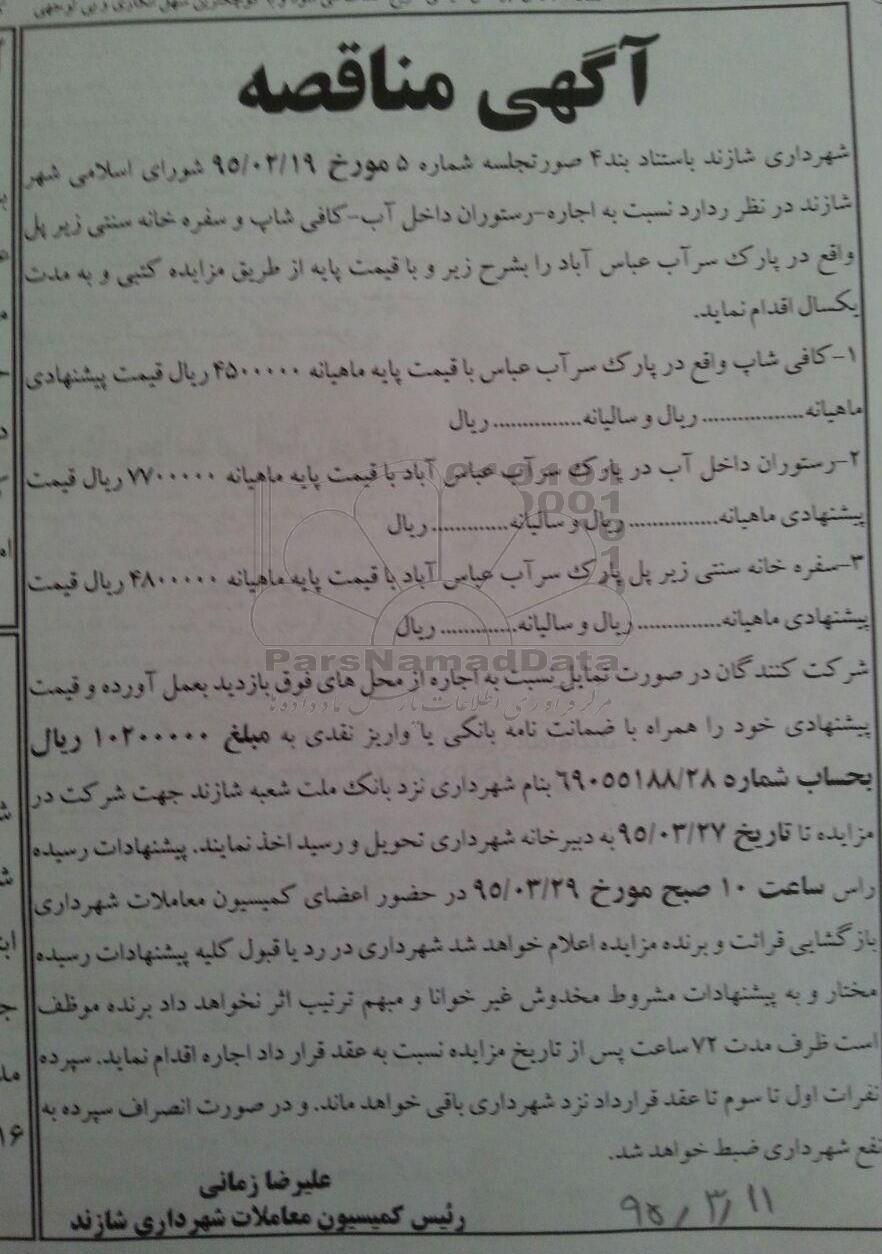 آگهی مناقصه
شهرداری شازند باستناد بند۴ صورتجلسه شماره ۵ مورخ ۹۵/۰۲/۱۹ شورای اسلامی شهر
شازند در نظر ردارد نسبت به اجاره-رستوران داخل آب-کافی شاپ و سفره خانه سنتی زیر پل
واقع در پارک سرآب عباس آباد را بشرح زیر و با قیمت پایه از طریق مزایده کتبی و به مدت
یکسال اقدام نماید.
۱-کافی شاپ واقع در پارک سرآب عباس با قیمت پایه ماهیانه ۴۵۰۰۰۰۰ ریال قیمت پیشنهادی
ماهیانه................. ریال و سالیانه............... ریال
۲-رستوران داخل آب در پارک سرآب عباس آباد با قیمت پایه ماهیانه ۷۷۰۰۰۰۰ ریال قیمت
پیشنهادی ماهیانه............... ریال و سالیانه............. ریال
۳-سفره خانه سنتی زیر پل پارک سرآب عباس آباد با قیمت پایه ماهیانه ۴۸۰۰۰۰۰ ریال قیمت
پیشنهادی ماهیانه.............. ریال و سالیانه............. ریال
ParsNamadData
شرکت کنندگان در صورت تمایل نسبت به اجاره از محل های فوق بازدید بعمل آورده و قیمت
مرکز فرآوری اطلاعات پارس نماد داده ها
پیشنهادی خود را همراه با ضمانت نامه بانکی یا واریز نقدی به مبلغ ۱۰۲۰۰۰۰۰ ریال
بحساب شماره ۶۹۰۵۵۱۸۸/۲۸ بنام شهرداری نزد بانک ملت شعبه شازند جهت شرکت در
مزایده تا تاریخ ۹۵/۰۳/۲۷ به دبیرخانه شهرداری تحویل و رسید اخذ نمایند. پیشنهادات رسیده
راس ساعت ۱۰ صبح مورخ ۹۵/۰۳/۲۹ در حضور اعضای کمیسیون معاملات شهرداری
بازگشایی قرائت و برنده مزایده اعلام خواهد شد شهرداری در رد یا قبول کلیه پیشنهادات رسیده
مختار و به پیشنهادات مشروط مخدوش غیر خوانا و مبهم ترتیب اثر نخواهد داد برنده موظف
است ظرف مدت ۷۲ ساعت پس از تاریخ مزایده نسبت به عقد قرار داد اجاره اقدام نماید. سپرده
نفرات اول تا سوم تا عقد قرارداد نزد شهرداری باقی خواهد ماند. و در صورت انصراف سپرده به
نفع شهرداری ضبط خواهد شد.
علیرضا زمانی
رئیس کمیسیون معاملات شهرداری شازند
۹۵/۳/۱۱